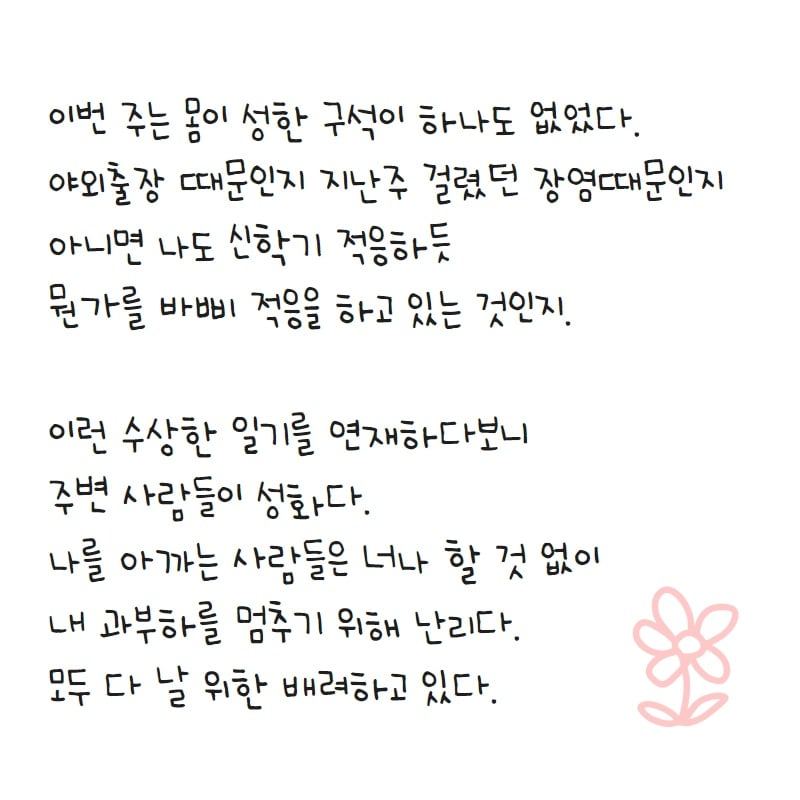 이번 주는 몸이 성한 구석이 하나도 없었다.
야외출장 때문인지 지난주 걸렸던 장염때문인지
아니면 나도 신학기 적응하듯
뭔가를 바삐 적응을 하고 있는 것인지.
이런 수상한 일기를 연재하다보니
주변 사람들이 성화다.
나를 아끼는 사람들은 너나 할 것 없이
내 과부하를 멈추기 위해 난리다.
모두 다 날 위한 배려하고 있다.